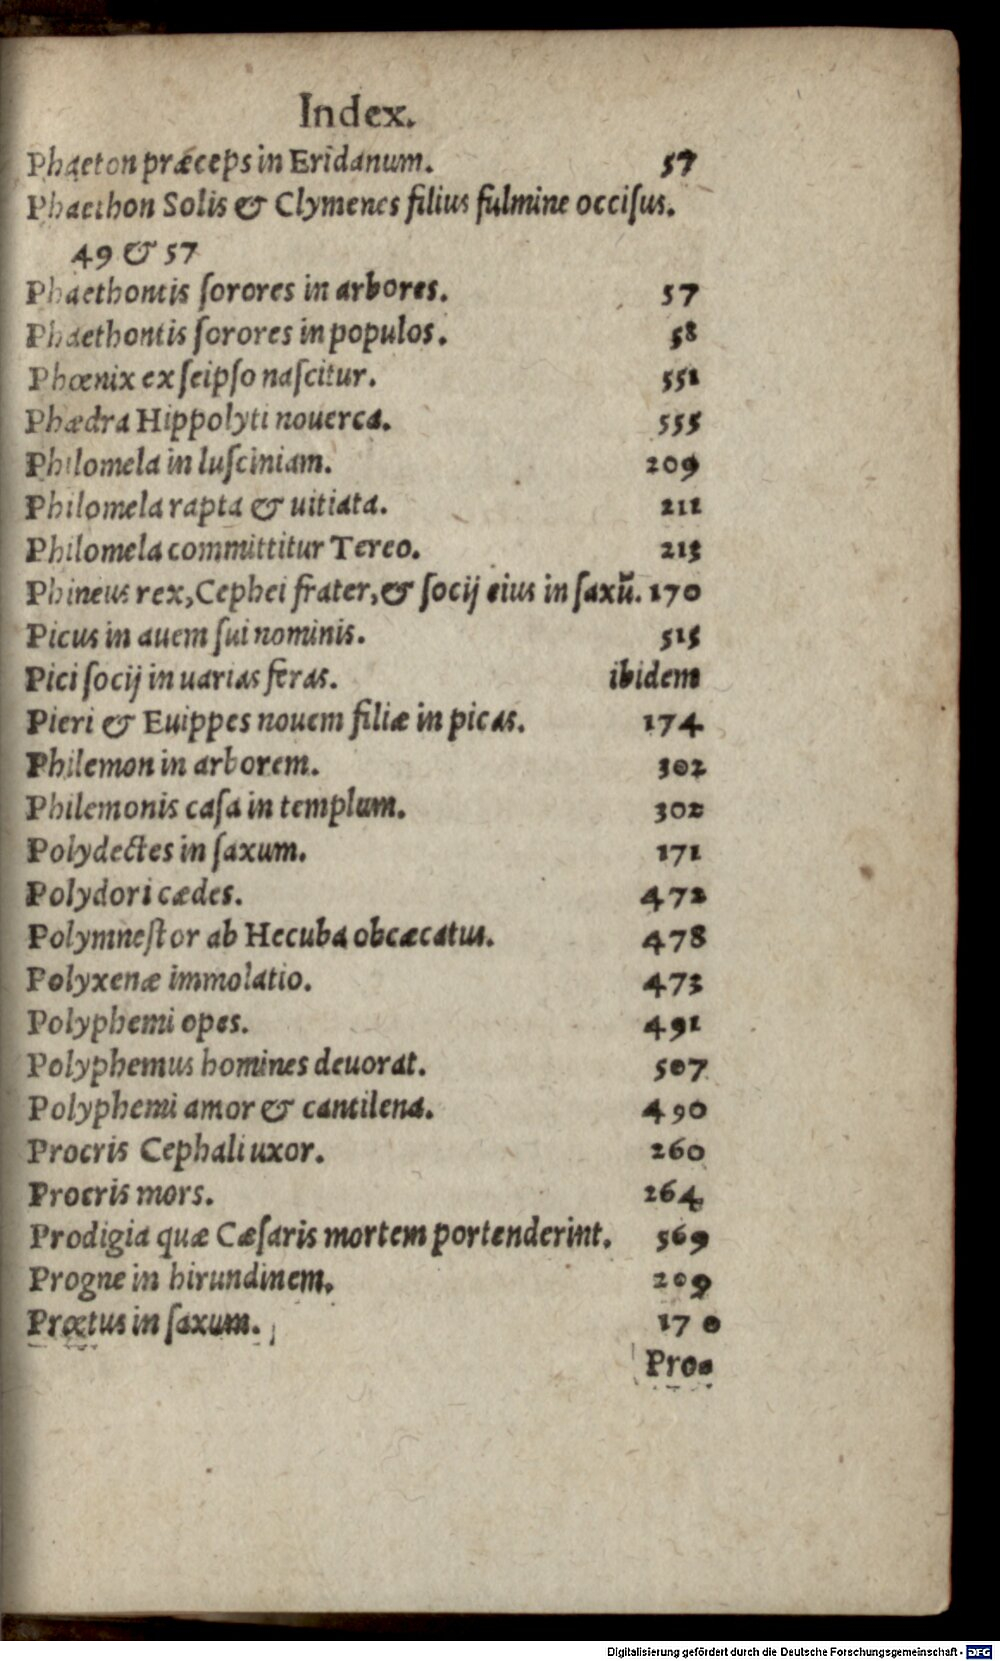 Index.
Phaeton præceps in Eridanum. 57
Phaethon Solis & Clymenes filius fulmine occiſus.
49 & 57
Phaethontis ſorores in arbores. 57
Phaethontis ſorores in populos. 58
Phœnix ex ſeipſo naſcitur. 551
Phædra Hippolyti nouerca. 555
Philomela in luſciniam. 209
Philomela rapta & uitiata. 211
Philomela committitur Tereo. 213
Phineus rex, Cephei frater, & ſocij eius in ſaxū. 170
Picus in auem ſui nominis. 515
Pici ſocij in uarias feras. ibidem
Pieri & Euippes nouem filiæ in picas. 174
Philemon in arborem. 302
Philemonis caſa in templum. 302
Polydectes in ſaxum. 171
Polydori cædes. 472
Polymneſtor ab Hecuba obcæcatus. 478
Polyxenæ immolatio. 473
Polyphemi opes. 491
Polyphemus homines deuorat. 507
Polyphemi amor & cantilena. 490
Procris Cephali uxor. 260
Procris mors. 264
Prodigia quæ Cæſaris mortem portenderint. 569
Progne in hirundinem. 209
Prœtus in ſaxum. 170
Pro-
Digitalisierung gefördert durch die Deutsche Forschungsgemeinschaft - DFG